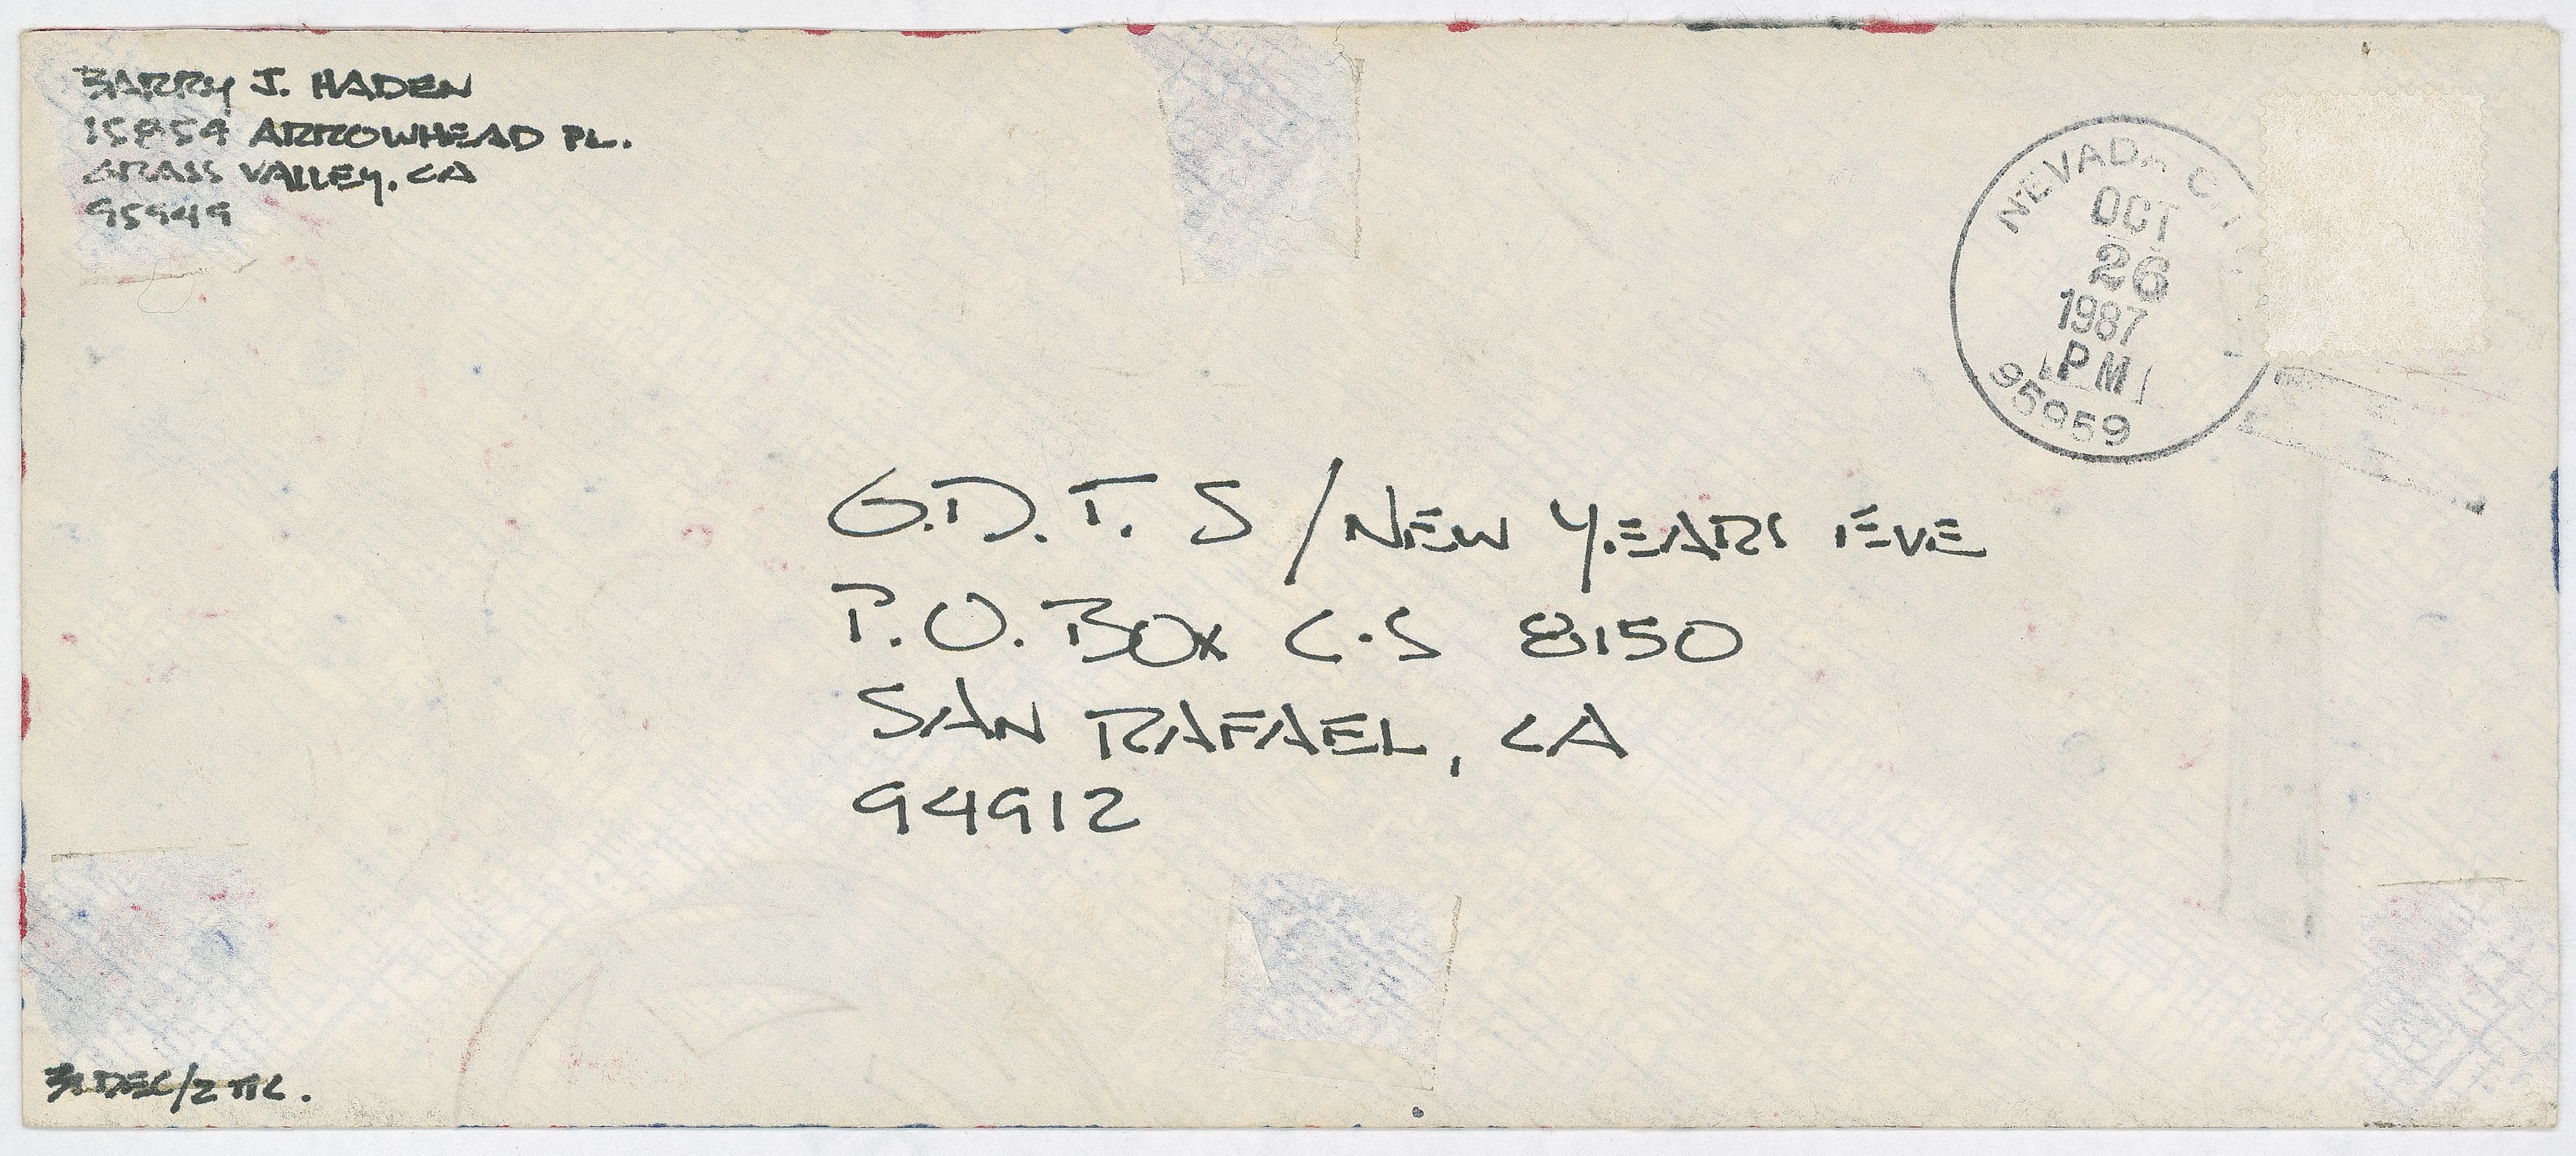 BARRY J. HADEN
15854 ARROWHEAD PL.
GRASS VALLEY, CA
95949
NEVADA CITY
OCT
26
1987
PM
95959
G.D.T.S / NEW YEARS EVE
P.O. BOX C.S 8150
SAN RAFAEL, CA
94912
31 DEC/2 TIC.